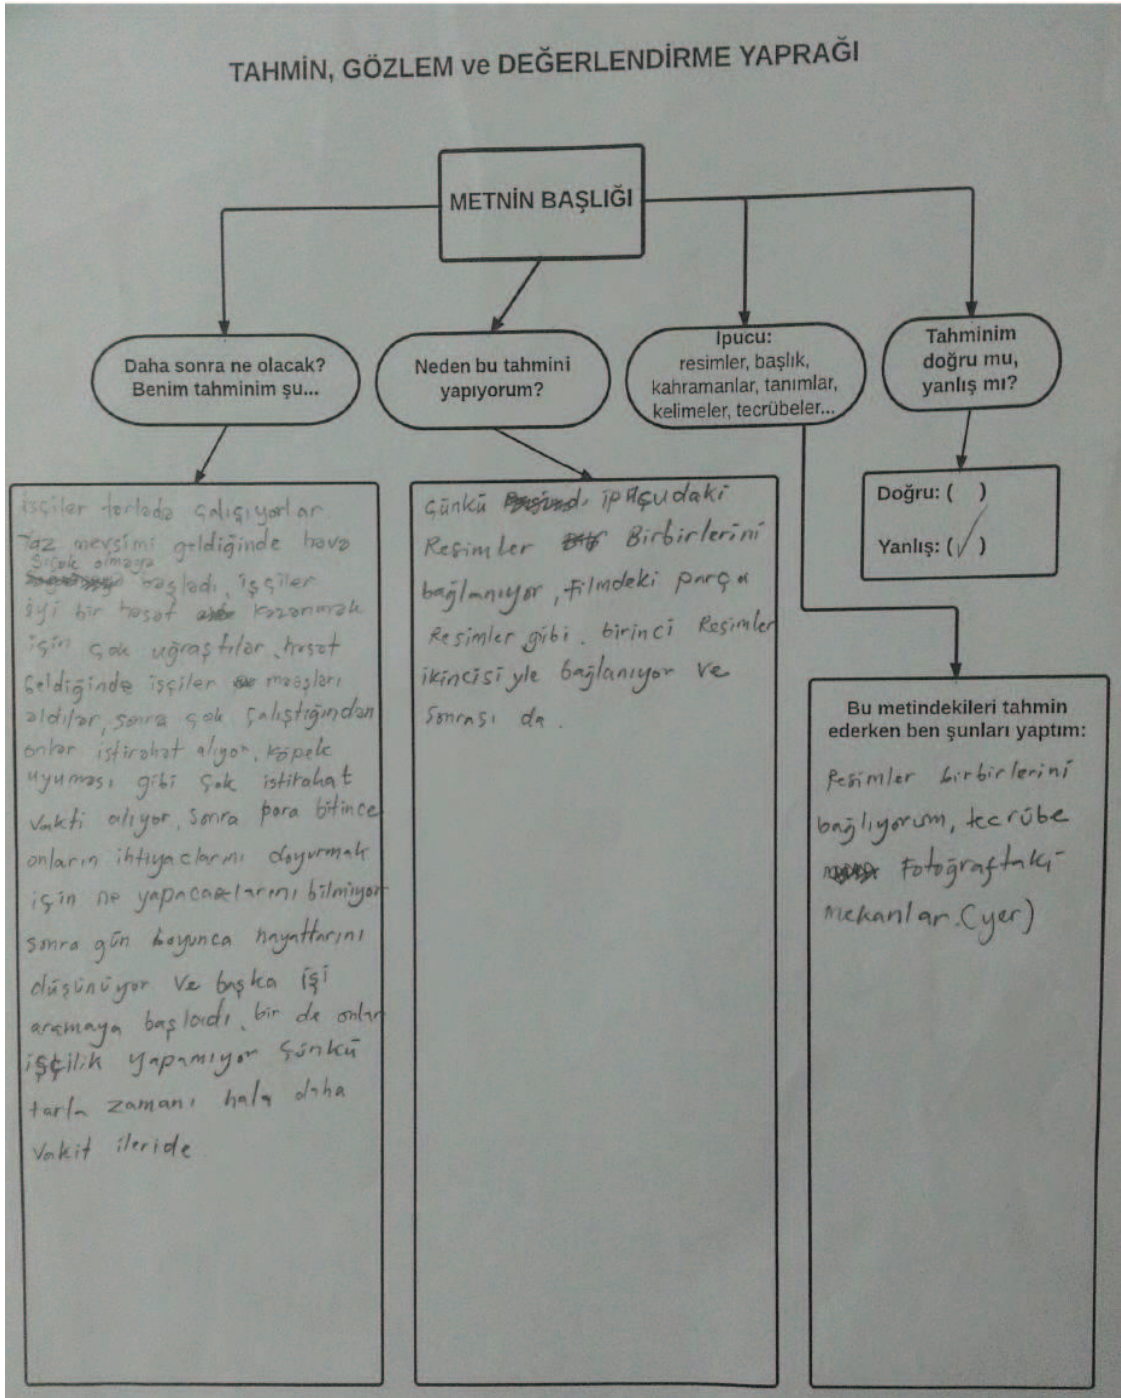 TAHMİN, GÖZLEM ve DEĞERLENDİRME YAPRAĞI
METNİN BAŞLIĞI
Daha sonra ne olacak?
Benim tahminim şu...
Neden bu tahmini
yapıyorum?
İpucu:
resimler, başlık,
kahramanlar, tanımlar,
kelimeler, tecrübeler...
Tahminim
doğru mu,
yanlış mı?
işçiler tarlada çalışıyorlar.
Yaz mevsimi geldiğinde hava
sıcak olmaya
başladı, işçiler
iyi bir hasat kazanmak
için çok uğraştılar. hasat
geldiğinde işçiler maaşları
aldılar, sonra çok çalıştığından
onlar istirahat alıyor, köpek
uyuması gibi çok istirahat
vakti alıyor, sonra para bitince
onların ihtiyaclarını doyurmak
için ne yapacaklarını bilmiyor
sonra gün boyunca hayatlarını
düşünüyor ve başka işi
aramaya başladı, bir de onlar
işçilik yapamıyor çünkü
tarla zamanı hala daha
vakit ileride
Çünkü ipuçudaki
Resimler Birbirlerini
bağlanıyor, filmdeki parça
Resimler gibi. birinci Resimler
ikincisiyle bağlanıyor ve
sonrası da.
Doğru: ( )
Yanlış: (✓)
Bu metindekileri tahmin
ederken ben şunları yaptım:
Resimler birbirlerini
bağlıyorum, tecrübe
Fotoğraftaki
mekanlar.(yer)